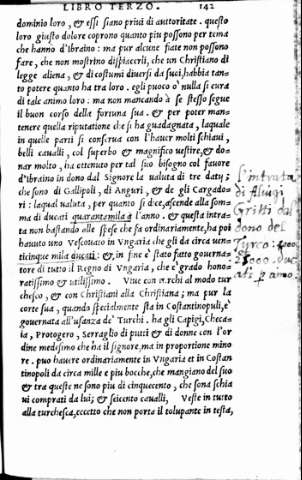 LIBRO TERZO. 142
dominio loro, & essi siano priui di auttoritate. questo
loro giusto dolore coprono quanto piu possono per tema
che hanno d'Ibraino: ma pur alcune fiate non possono
fare, che non mostrino dispiacerli, che un Christiano di
legge aliena, & di costumi diuersi da suoi, habbia tan-
to potere quanto ha tra loro. egli puoco o' nulla si cura
di tale animo loro: ma non mancando à se stesso segue
il buon corso della fortuna sua. & per poter man-
tenere quella riputatione che s'ha guadagnata, laquale
in quelle parti si conserua con l'hauer molti schiaui,
belli caualli, col superbo & magnifico uestire, & do-
nar molto, ha ottenuto per tal suo bisogno col fauore
d'Ibraino in dono dal Signore la ualuta di tre daty;
che sono di Gallipoli, di Anguri, & de gli Cargado-
ri: laqual ualuta, per quanto si dice, ascende alla som-
ma di ducati quarantamila à l'anno. & questa intra-
ta non bastando alle spese che fa ordinariamente, ha poi
hauuto uno Vescouato in Vngaria che gli da circa uen-
ticinque mila ducati: & in fine è stato fatto gouerna-
tore di tutto il Regno di Vngaria, che e' grado hono-
ratissimo & utilissimo. Viue con Turchi al modo tur
chesco, & con Christiani alla Christiana; ma pur la
corte sua, quando specialmente sta in Costantinopuli, e'
gouernata all'usanza de' Turchi. ha gli Capigi, Checa-
ia, Protogero, Serraglio di putti & di donne con l'or
dine medesimo che ha il signore, ma in proportione mino
re. puo hauere ordinariamente in Vngaria et in Costan
tinopoli da circa mille e piu bocche, che mangiano del suo
& tra queste ne sono piu di cinquecento, che sono schia
ui comprati da lui; & seicento caualli, Veste in tutto
alla turchesca, eccetto che non porta il tolupante in testa,
l'intrata
di Aluigi
Gritti dal
dono del
Turco: